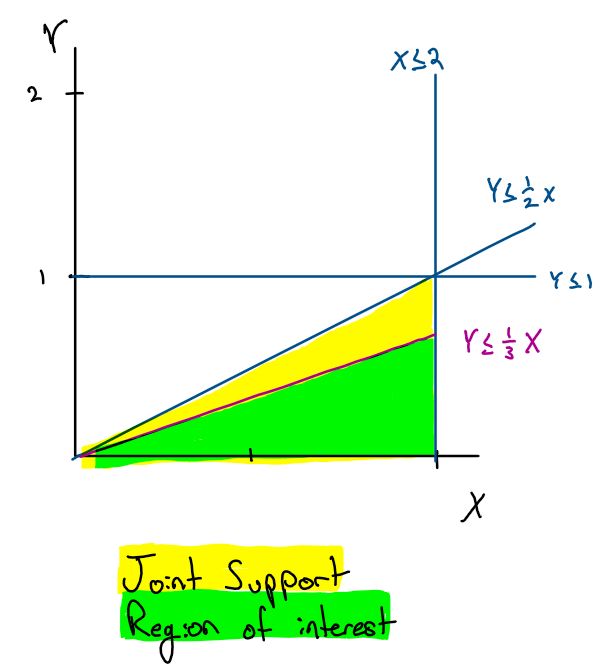 Y
X≤2
2
Y≤½X
1
Y≤1
Y≤⅓X
X
Joint Support
Region of interest